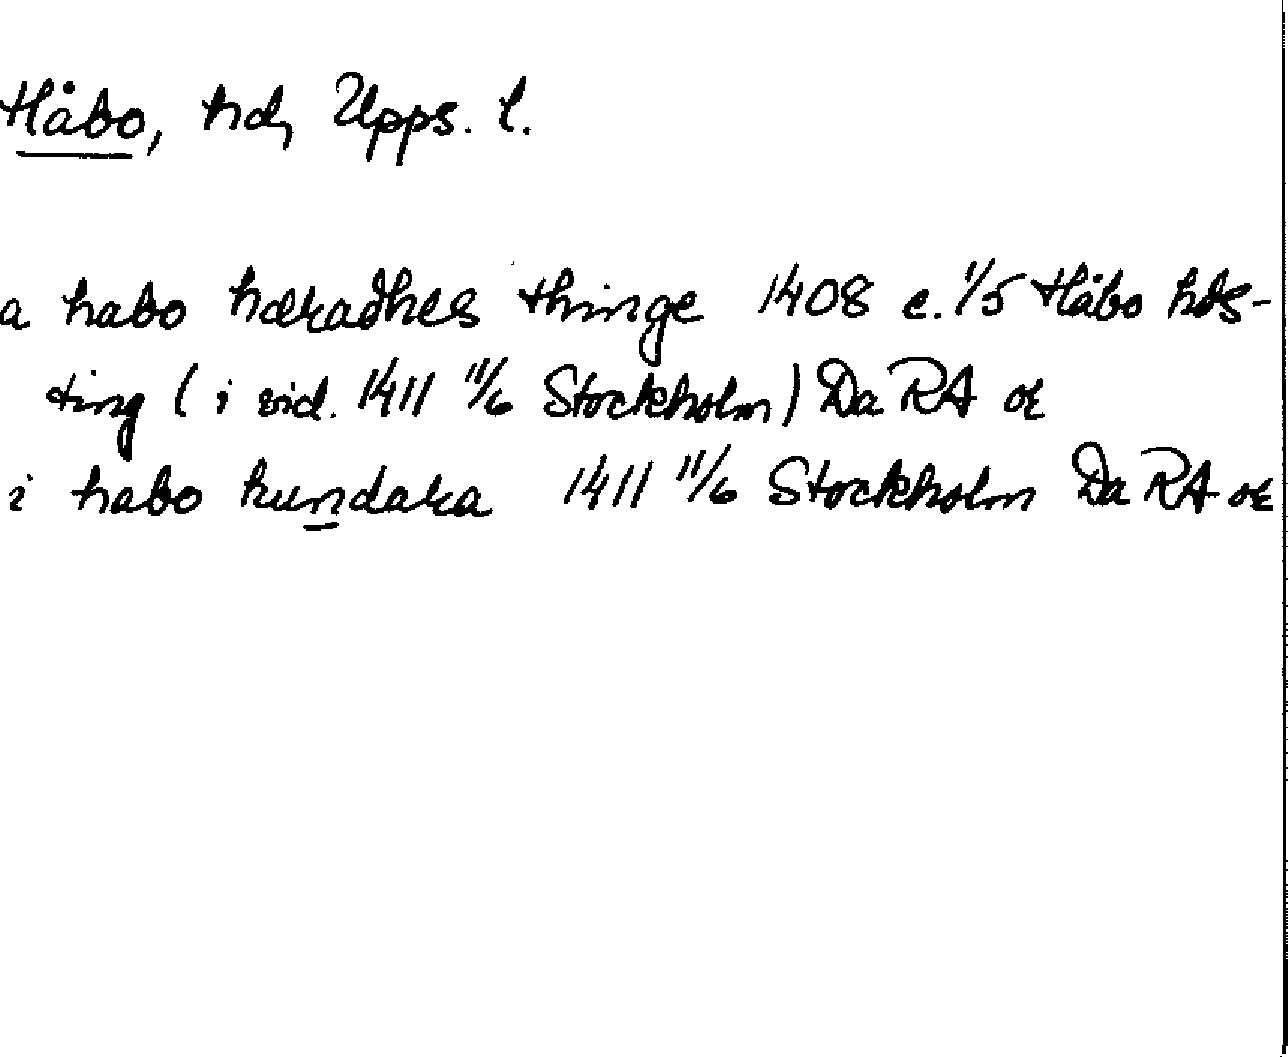 Håbo, hd, Upps. l.
a habo hæradhes thinge 1408 e. 1/5 Håbo hds-
ting (i vid. 1411 11/6 Stockholm) Da RA or
i habo hundara 1411 11/6 Stockholm Da RA or